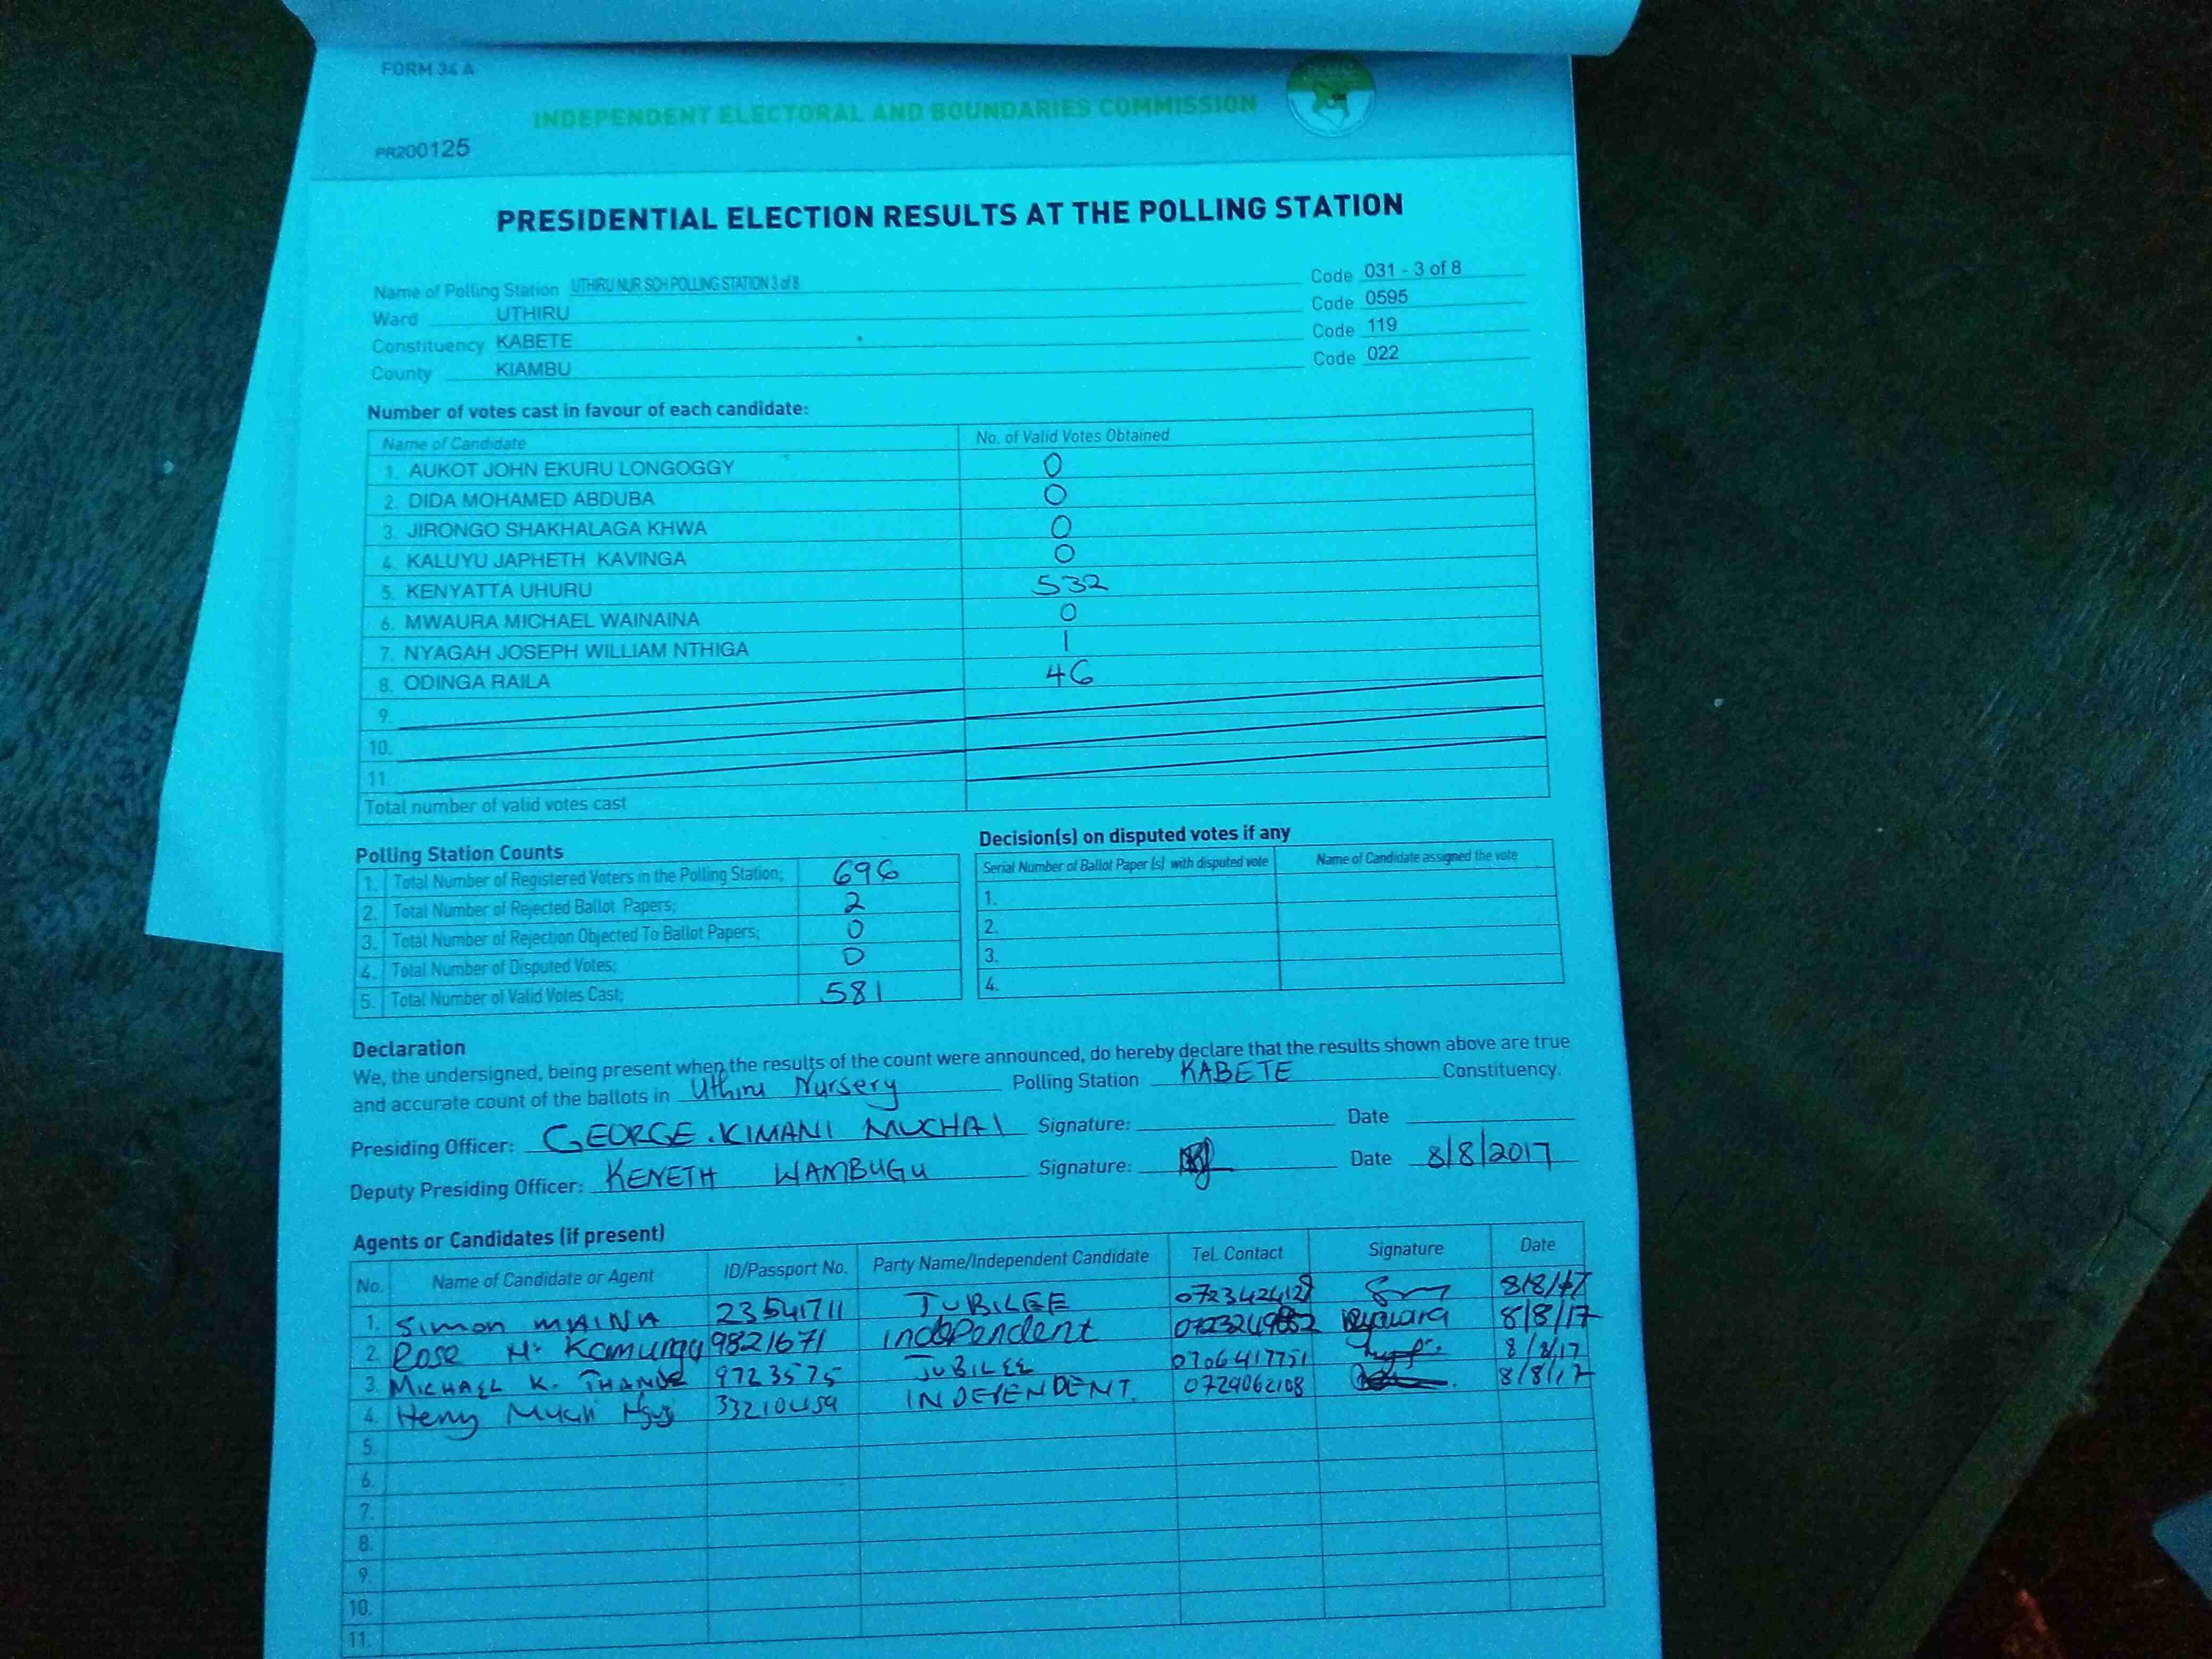 FORM 34 A
INDEPENDENT ELECTORAL AND BOUNDARIES COMMISSION
PR200125
PRESIDENTIAL ELECTION RESULTS AT THE POLLING STATION
Name of Polling Station UTHIRU NUR SCH POLLING STATION 3 of 8 Code 031 - 3 of 8
Ward UTHIRU Code 0595
Constituency KABETE Code 119
County KIAMBU Code 022
Number of votes cast in favour of each candidate:
Name of Candidate No. of Valid Votes Obtained
1. AUKOT JOHN EKURU LONGOGGY 0
2. DIDA MOHAMED ABDUBA 0
3. JIRONGO SHAKHALAGA KHWA 0
4. KALUYU JAPHETH KAVINGA 0
5. KENYATTA UHURU 532
6. MWAURA MICHAEL WAINAINA 0
7. NYAGAH JOSEPH WILLIAM NTHIGA 1
8. ODINGA RAILA 46
9.
10.
11.
Total number of valid votes cast
Polling Station Counts
1. Total Number of Registered Voters in the Polling Station; 696
2. Total Number of Rejected Ballot Papers; 2
3. Total Number of Rejection Objected To Ballot Papers; 0
4. Total Number of Disputed Votes; 0
5. Total Number of Valid Votes Cast; 581
Decision(s) on disputed votes if any
Serial Number of Ballot Paper (s) with disputed vote Name of Candidate assigned the vote
1.
2.
3.
4.
Declaration
We, the undersigned, being present when the results of the count were announced, do hereby declare that the results shown above are true
and accurate count of the ballots in Uthiru Nursery Polling Station KABETE Constituency.
Presiding Officer: GEORGE . KIMANI MUCHAI Signature: Date
Deputy Presiding Officer: KENETH WAMBUGU Signature: Date 8/8/2017
Agents or Candidates (if present)
No. Name of Candidate or Agent ID/Passport No. Party Name/Independent Candidate Tel. Contact Signature Date
1. Simon MAINA 23541711 JUBILEE 8/8/17
2. Rose 9821671 independent 8/8/17
3. MICHAEL K. 9723575 JUBILEE 0706417751 8/8/17
4. Heny 33210459 INDEPENDENT. 0729062108 8/8/17
5.
6.
7.
8.
9.
10.
11.